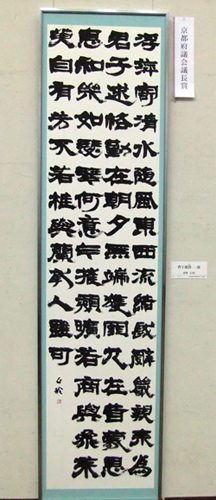 京都府議会議長賞
浮萍寄清水隨風東西流結髮辭嚴親来為
君子逑恪勤在朝夕無端獲罪尤在昔蒙恩
惠和樂如瑟琴何意今摧頹曠若商與參茱
萸自有芳不若桂與蘭新人雖可